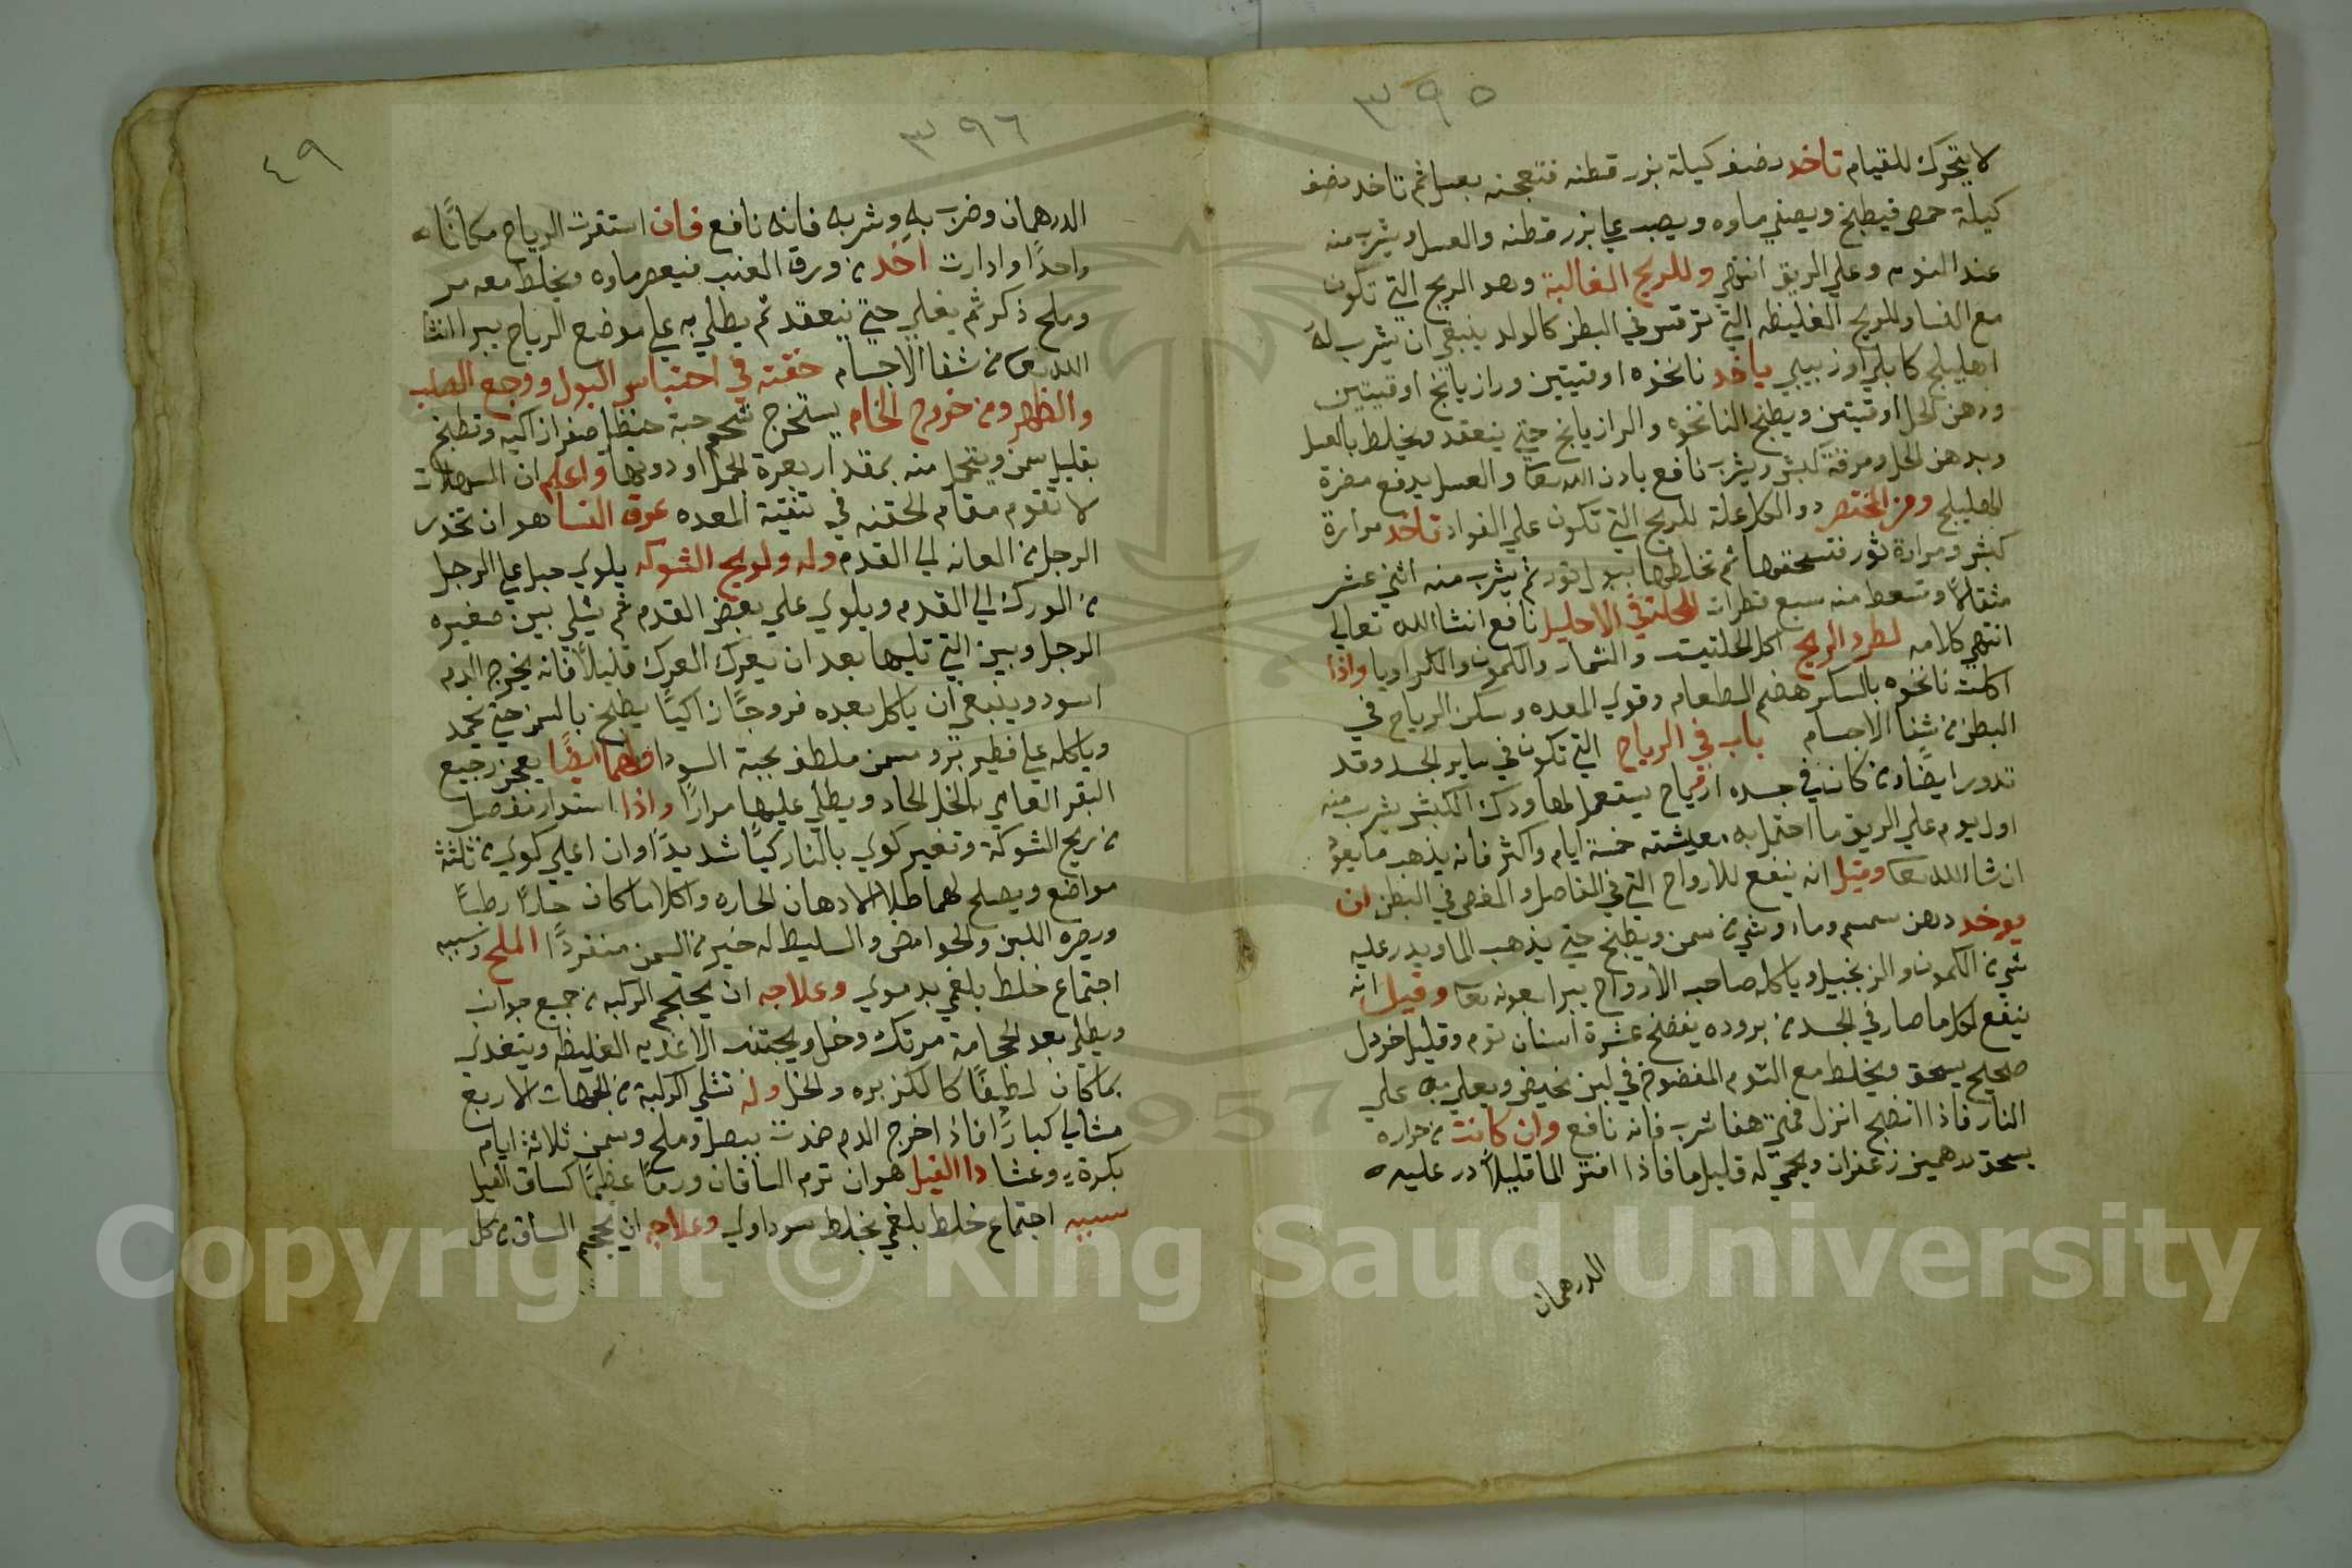 ٣٩٥
لا يتحرك للقيام تاخد نصف كيلة بزر قطنه فتعجنه بعسل ثم تاخد نصف
كيلة حمص فيطبخ ويصفي ماوه ويصب علي بزر قطنه والعسل ويشرب منه
عند النوم وعلي الريق انتهي وللريح الغالبة وهو الريح التي تكون
مع النسا وللريح الغليظه التي في البطن كالولد ينبغي ان يشرب له
اهليلج كابلي او زبيبي ياخد نانخذه اوقيتين ورازيانج اوقيتين
ودهن الخل اوقيتين ويطبخ النانخوه والرازيانج حتي ينعقد ويخلط بالعسل
وبدهن الخل ومرقة كبش ويشرب نافع باذن الله تعا والعسل يدفع مضرة
الهليلج ومن المختصر دوا لكل علة للريح التي تكون علي الفواد تاخد مرارة
كبش ومرارة ثور فتسحقها ثم تخلطها ببول ثور ثم يشرب منه اثني عشر
مثقالا وتسعط منه سبع قطرات الاحليل نافع انشا الله تعالي
انتهي كلامه لطرد الريح اكل الحلتيت والشمار والكمون والكراويا واذا
اكلت نانخوه بالسكر هضم الطعام وقوي المعده وسكن الرياح في
البطن من شفا الاجسام باب في الرياح التي تكون في ساير الجسد وقد
تدور ايضا من كان في جسده ارياح يستعمل لها ودك الكبش يشرب منه
اول يوم علي الريق ما احتمل به معيشته خمسة ايام واكثر فانه يذهب ما يعود
ان شا الله تعا وقيل انه ينفع للارواح التي في المفاصل والمغص في البطن ان
يوخد دهن سمسم وماء وشي من سمن ويطبخ حتي يذهب الما ويدر عليه
شي من الكمون والزنجبيل وياكله صاحب الارواح يبرا بعونه تعا وقيل انه
ينفع لكل ما صار في الجسد من بروده يفضخ عشرة اسنان توم وقليل خردل
صحيح يسحق ويخلط مع الثوم المفضوخ في لبن مخيض ويغلي به علي
النار فاذا انضج انزل فمتي هفا شرب فانه نافع وان كانت من حراره
يسحق درهمين زعفران ويحمي له قليل ما فاذا افتر الما قليلا در عليه
الدرهمان
٣٩٦
٤٩
الدرهمان وضرب به وشربه فانه نافع فان استقرت الرياح مكانا
واحدا وادارت اخد من ورق العنب فيعصر ماوه ويخلط معه مر
وملح ذكر ثم يغلي حتي ينعقد ثم يطلي به علي موضع الرياح يبرا انشا
الله تعا من شفا الاجسام حقنة في احتباس البول ووجع الصلب
والظهر ومن خروج الخام يستخرج شحم حبة حنظل صفرا زاكيه وتطبخ
بقليل سمن ويتحمل منه بمقدار بعرة الجمل او دونها واعلم ان المسهلات
لا تقوم مقام الحقنه في تنقية المعده عرق النسا هو ان تخدر
الرجل من العانه الي القدم وله ولريح الشوكه يلوي حبل علي الرجل
من الورك الي القدم ويلوي علي بعض القدم ثم يشلي بين صغيره
الرجل وبين التي تليها بعد ان يعرك العرك قليلا فانه يخرج الدم
اسود وينبغي ان ياكل بعده فروجا زاكيا يطبخ بالسمن حتي يخمد
وياكله علي فطير بر وسمن ملطف بحبة السودا ولهما ايضا يعجن رجيع
البقر العامي بالخل الحاد ويطلي عليها مرارا واذا استدار مفصل
من ريح الشوكة وتغير كوي بالنار كيا شديدا وان اعلي كوي من ثلثة
مواضع ويصلح لهما طلا الادهان الحاره واكل ما كان حارا رطبا
ويضره اللبن والحوامض والسليط له خير من السمن منفردا الملح وسببه
اجتماع خلط بلغمي بدموي وعلاجه ان يحجم الركبه من جميع جوانب
ويطلي بعد الحجامة مرتك وخل ويجتنب الاغذيه الغليظه ويتغدي
بما كان لطيفا كالكزبره والخل وله تشلي الركبة من الجهات الاربع
مشالي كبارا فاذا خرج الدم ضمدت ببصل وملح وسمن ثلاثة ايام
بكرة وعشا دا الفيل هو ان ترم الساقان ورما عظيما كساق الفيل
سببه اجتماع خلط بلغمي بخلط سوداوي وعلاجه ان يحجم الساق من كل
Copyright © King Saud University
1957